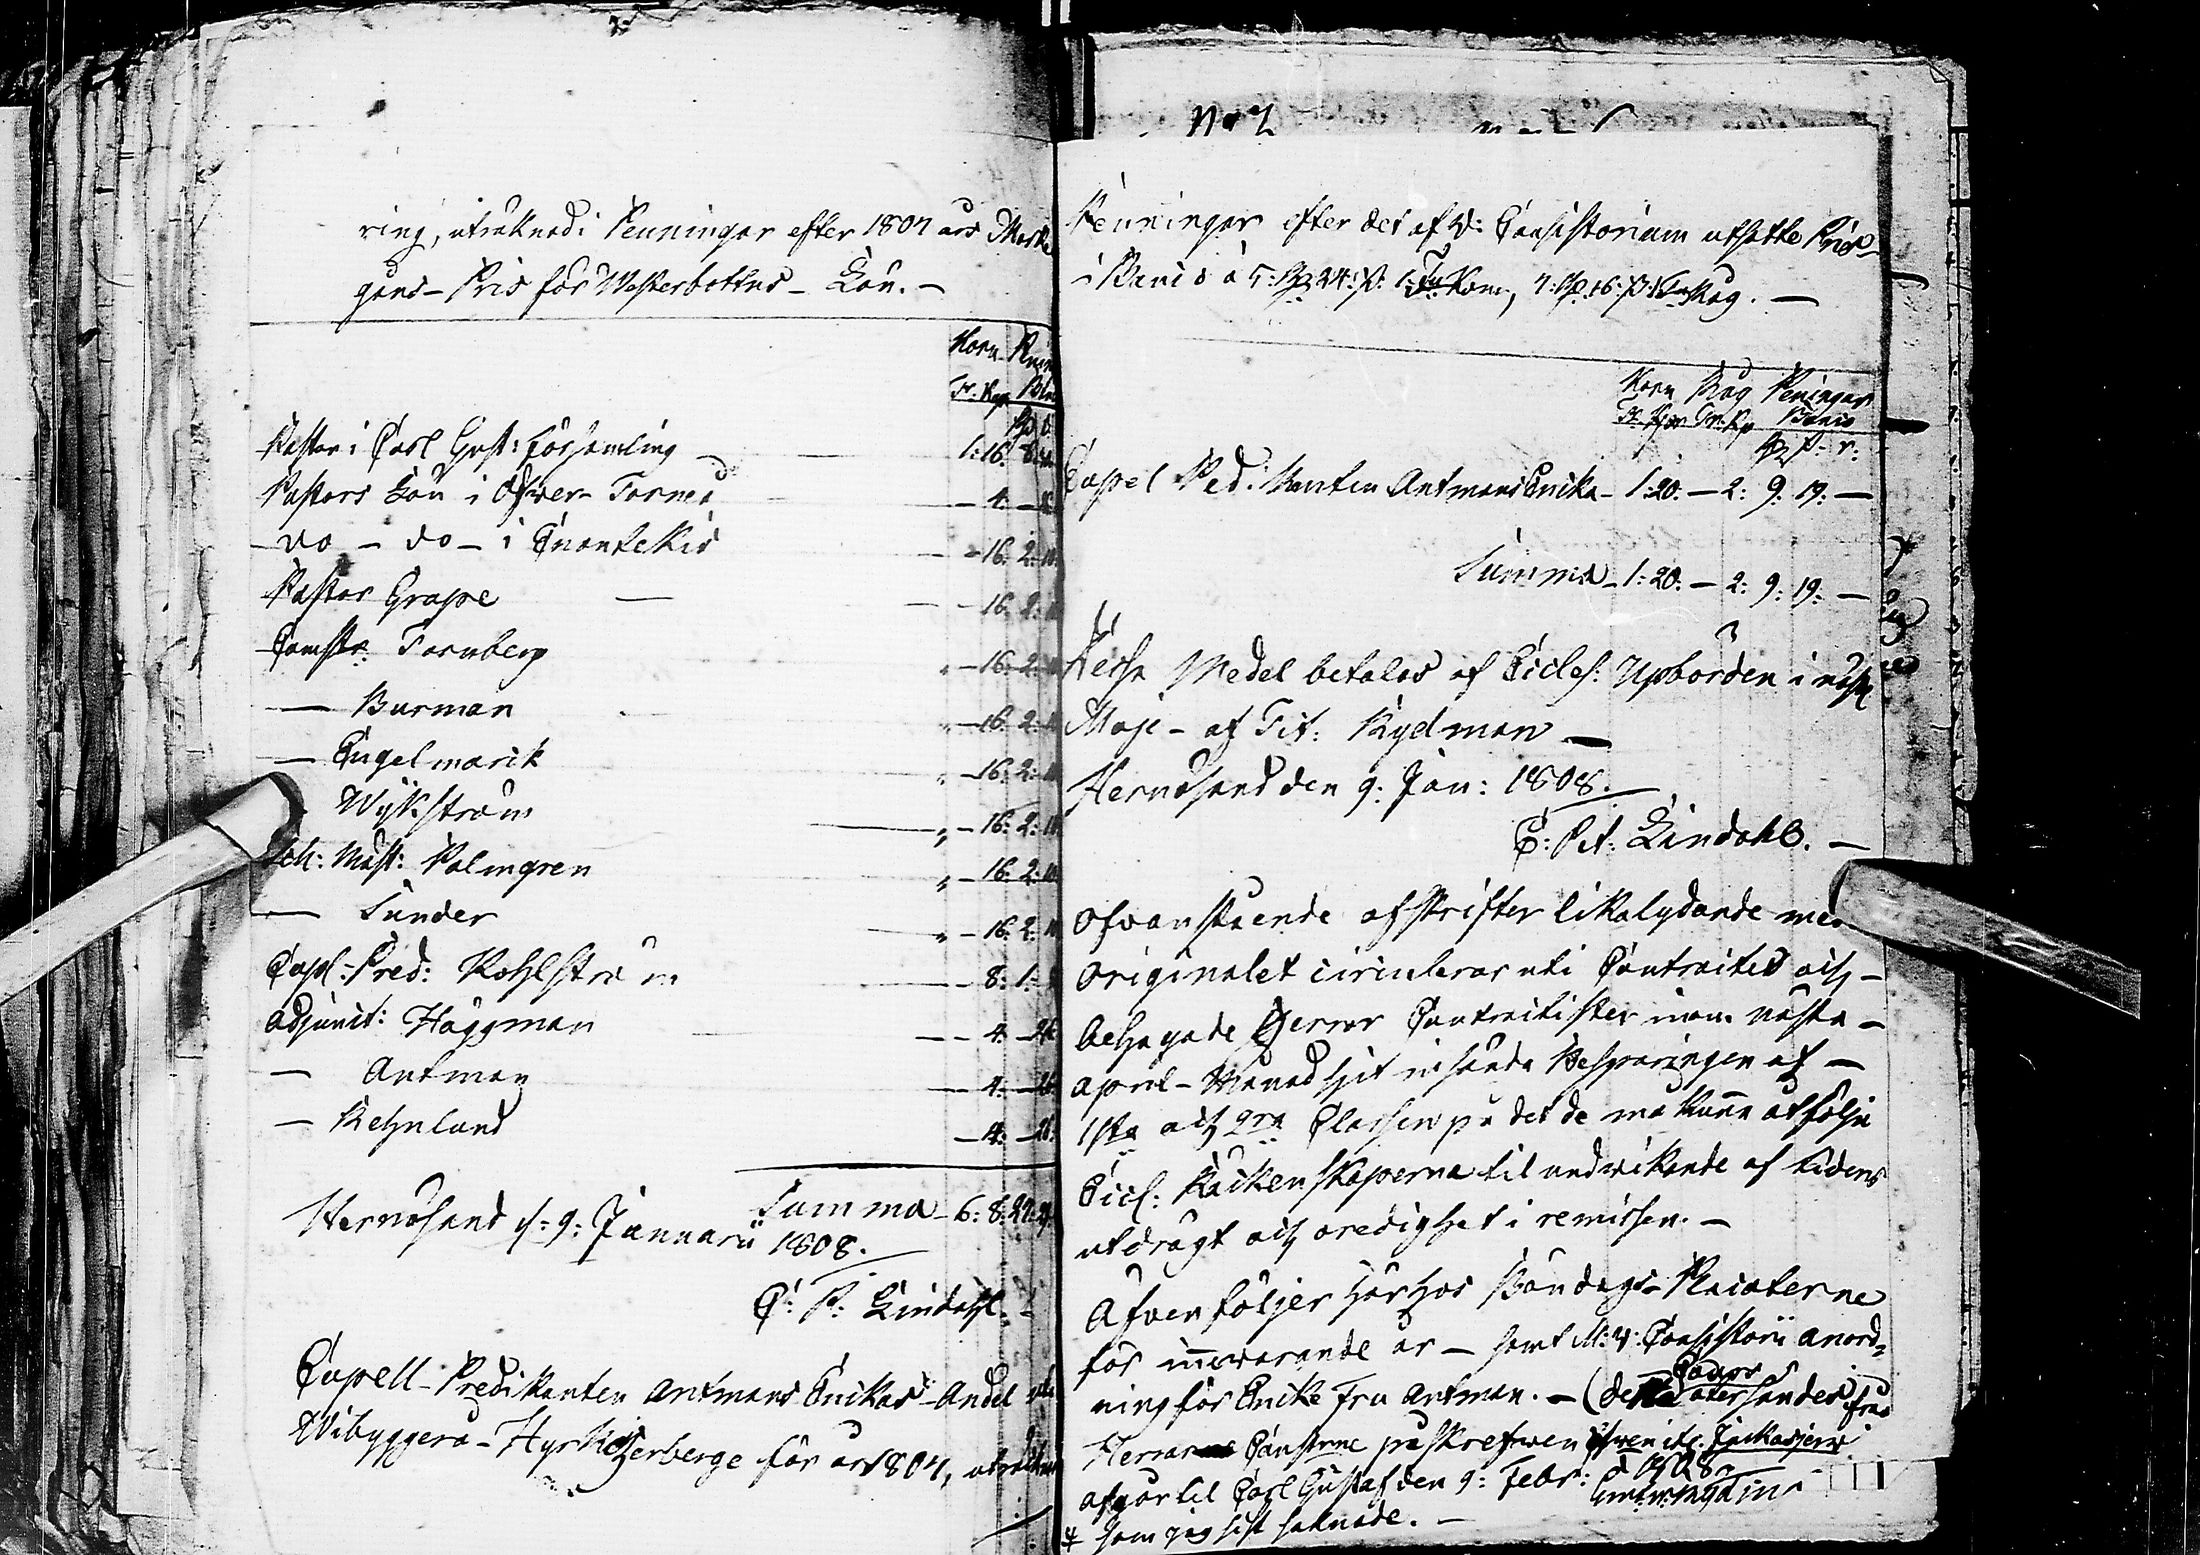 ring, uträknad i Penningar efter 1807 års Marke
gångs-Pris för Westerbottns-Län. -
Korn Penn
Tr. Kpr Bco
Rd s
Pastor i Carl Gust: församling 1: 16:
Pastors Lön i Öfwer-Torneå - 4:
do - do - i Enontekis - 16: 2: 10
Pastor Grape - 16: 2: 10
Comstr. Fornberg - 16: 2: 10
- Burman - 16: 2: 10
- Engelmarck - 16: 2: 10
Wijkström - 16: 2: 10
Sch: Mäst: Palmgren - 16: 2: 10
- Sunder - 16: 2: 10
Capl: Pred: Kohlström - 8: 1:
Adjunct: Häggman - 4:
- Antman - 4:
- Rehnlund - 4:
Summa - 6: 8:
Hernösand d: 9: Januarii 1808.
C: P: Lindahl.
Capell-Predikanten Antmans Enkas-Andel uti
Nibyggera-Hyrkiherberge för år 1807, uträknad
No 2
Penningar efter det af V: Consistorium utsatte Pris
i Banco à 5: Rd 24: s: 1: Tu Korn, 7: Rd 16: s: Tu Råg. -
Korn Råg Peningar
Tr. Kpr Tr. Kp Banco
Rd s: r:
Capel Pred: Manten Antmans Encka - 1: 20: - 2: 9: 19: -
Summa - 1: 20: - 2: 9: 19: -
Dessa Medel betalas af Eccles: Upbörden i näst
Maji - af Tit: Rydman -
Hernösand den 9: Jan: 1808.
C: Pet: Lindahl. -
Ofvanstående afskrifter likalydande med
Originalet circulerar uti Contractet och -
behagade Herrar Contractister inom nästa -
April - Månad hit insända Besparingen af -
1sta och 2ra Classen på det de må kunna åtfölja
Eccl: Räckenskaperna til undwikande af tidens
utdrägt och oredighet i remissen. -
Äfven följer härhos Böndags-Placaterne
för innewarande år - samt M: V: Consistorii anord-
ning för Encke Fru Antman. - (detta återsändes från
Herrar påskrefwen
afgår til Carl Gustaf den 9: Febr: 1808
som jag sist saknade. -